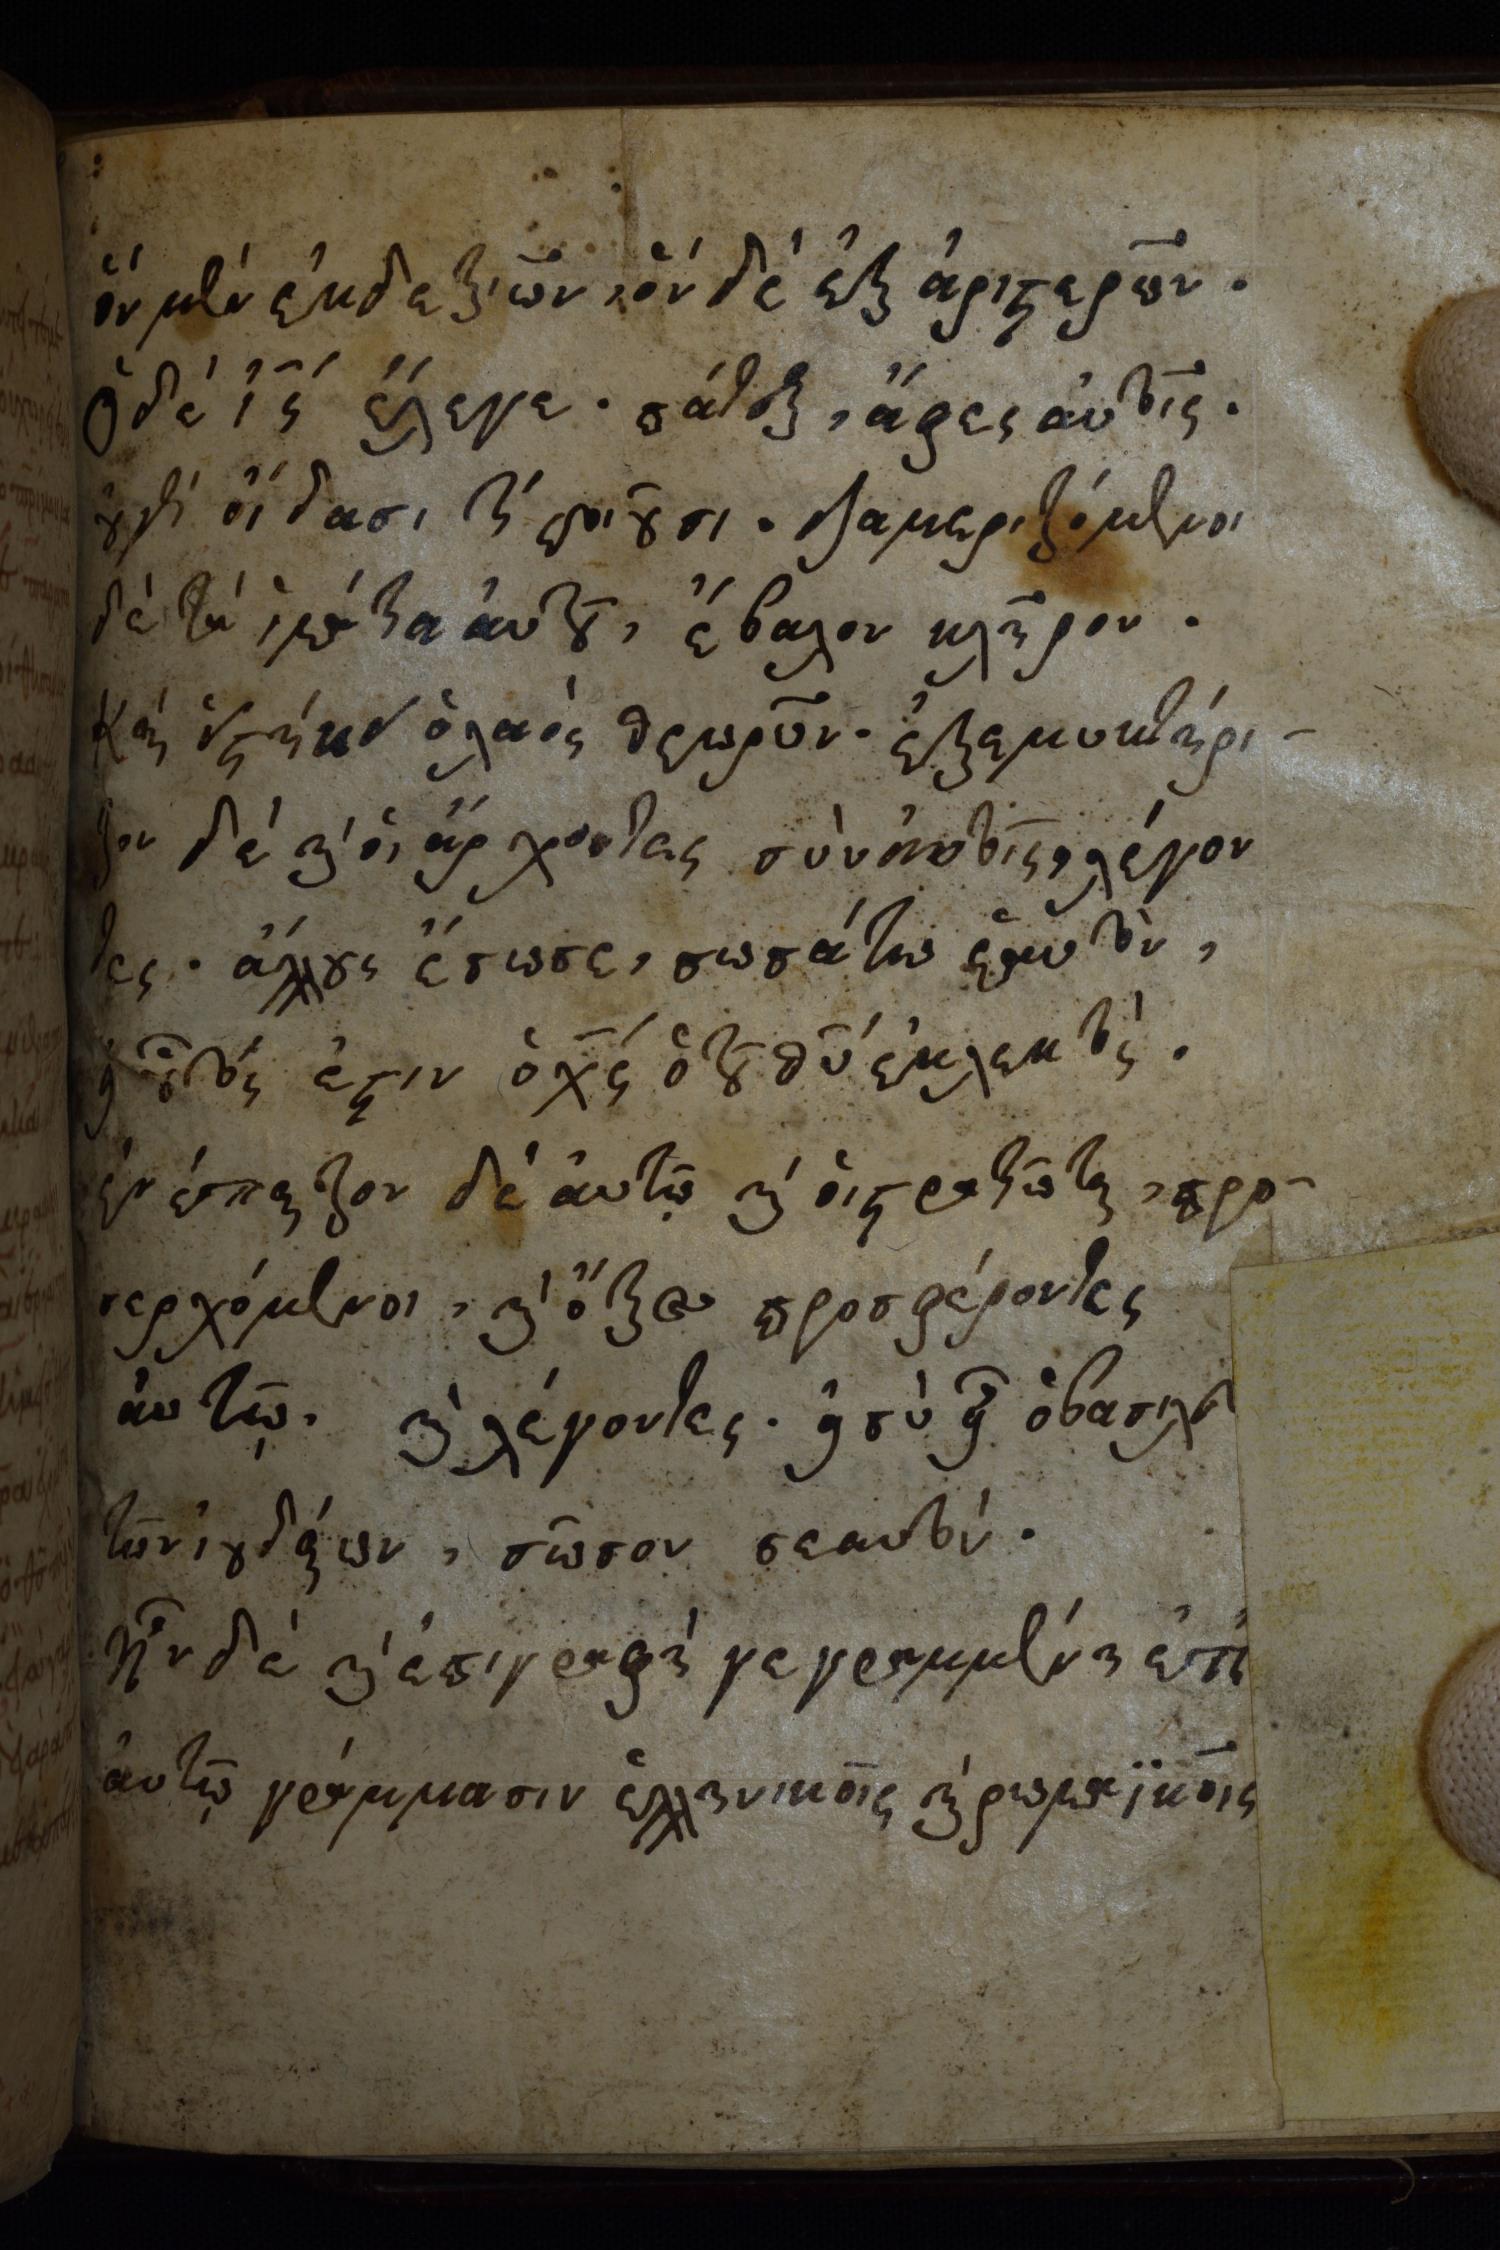 ὃν μὲν ἐκ δεξιῶν, ὃν δὲ ἐξ ἀριστερῶν.
Ὁ δὲ ις ἔλεγε. πάτερ, ἄφες αὐτοῖς.
οὐ γὰρ οἴδασι τί ποιοῦσι. διαμεριζόμενοι
δὲ τὰ ἱμάτια αὐτοῦ, ἔβαλον κλῆρον.
Καὶ εἱστήκει ὁ λαὸς θεωρῶν. ἐξεμυκτήρι-
ζον δὲ καὶ οἱ ἄρχοντες σὺν αὐτοῖς, λέγον
τες. ἄλλους ἔσωσε, σωσάτω ἑαυτὸν,
εἰ οὗτός ἐστιν ὁ χς ὁ τοῦ θυ ἐκλεκτός.
ἐνέπαιζον δὲ αὐτῷ καὶ οἱ στρατιῶται, προ-
σερχόμενοι, καὶ ὄξος προσφέροντες
αὐτῷ. καὶ λέγοντες. εἰ σὺ εἶ ὁ βασιλεὺ
τῶν ἰουδαίων, σῶσον σεαυτόν.
Ἦν δὲ καὶ ἐπιγραφὴ γεγραμμένη ἐπ'
αὐτῷ γράμμασιν ἑλληνικοῖς καὶ ρωμαϊκοῖς